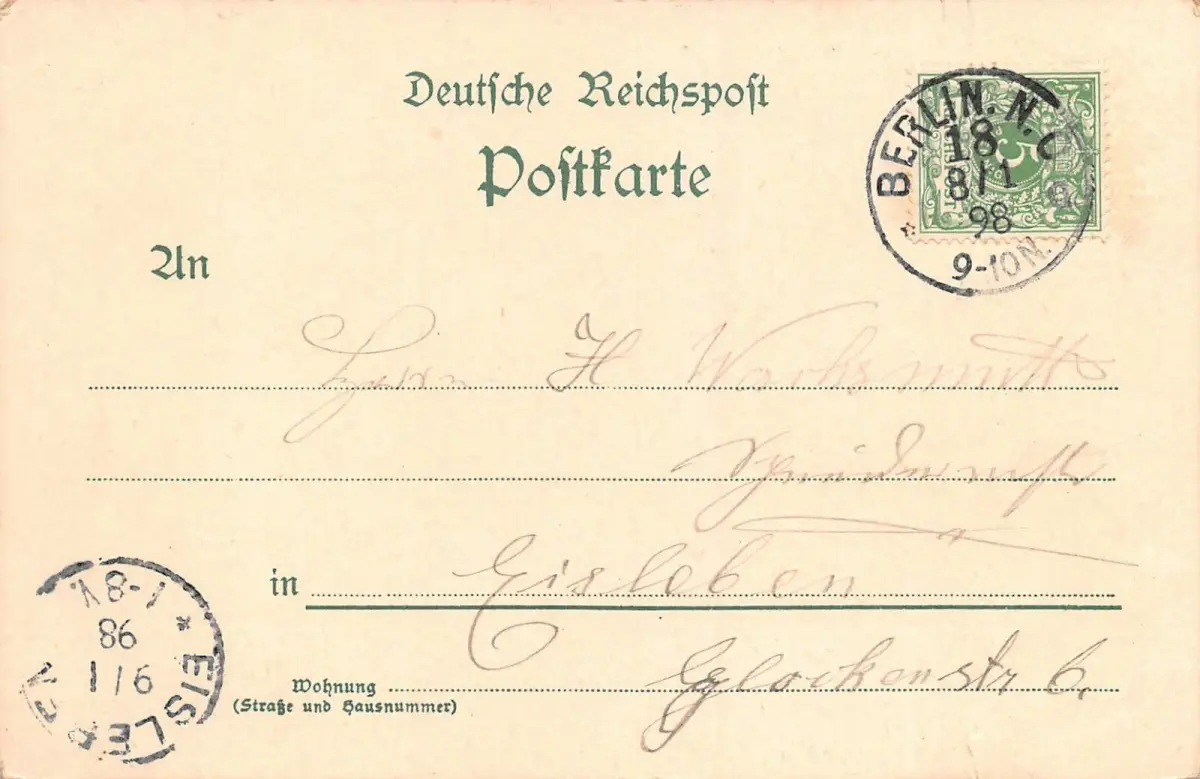 Deutsche Reichspost
Postkarte
BERLIN. N.
18
8/1
98
9-10N.
5
An
Herrn H Wachsmuth
in Eisleben
Glockenstr 6.
Wohnung
(Straße und Hausnummer)
EISLEBEN
9/1
98
7-8V.